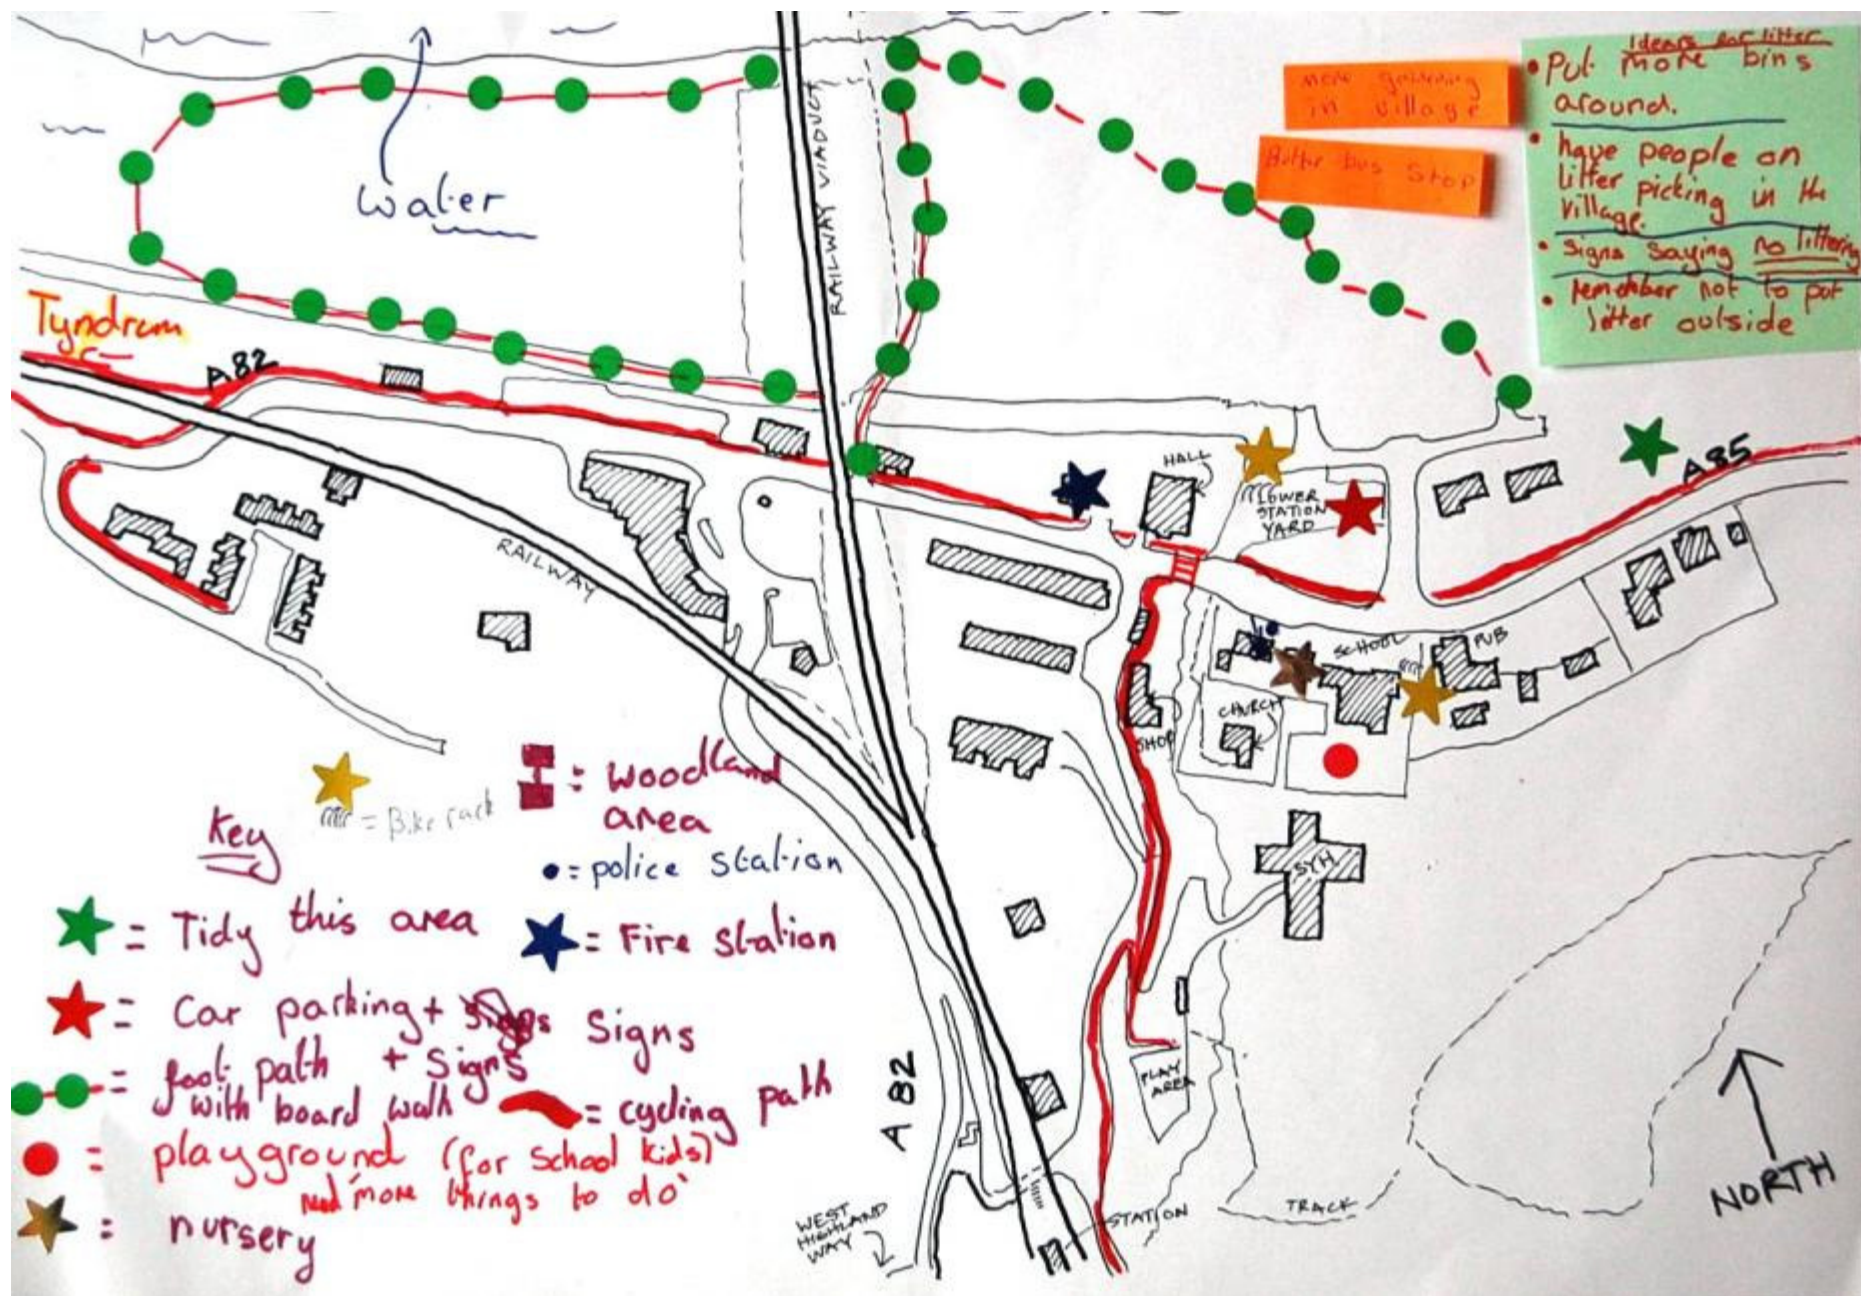 Water
RAILWAY VIADUCT
more gardening
in village
Better bus stop
Ideas for litter
• Put more bins
around.
• have people on
litter picking in the
village.
• signs saying no littering
• remember not to put
litter outside
Tyndrum
A82
A85
RAILWAY
HALL
LOWER
STATION
YARD
SCHOOL
PUB
CHURCH
SHOP
SYH
PLAY
AREA
A82
WEST
HIGHLAND
WAY
STATION
TRACK
NORTH
Key
= Bike rack
= woodland
area
= police station
= Tidy this area
= Fire station
= Car parking + Signs
= foot path + Signs
with board walk
= cycling path
= playground (for school kids)
need more things to do
= nursery